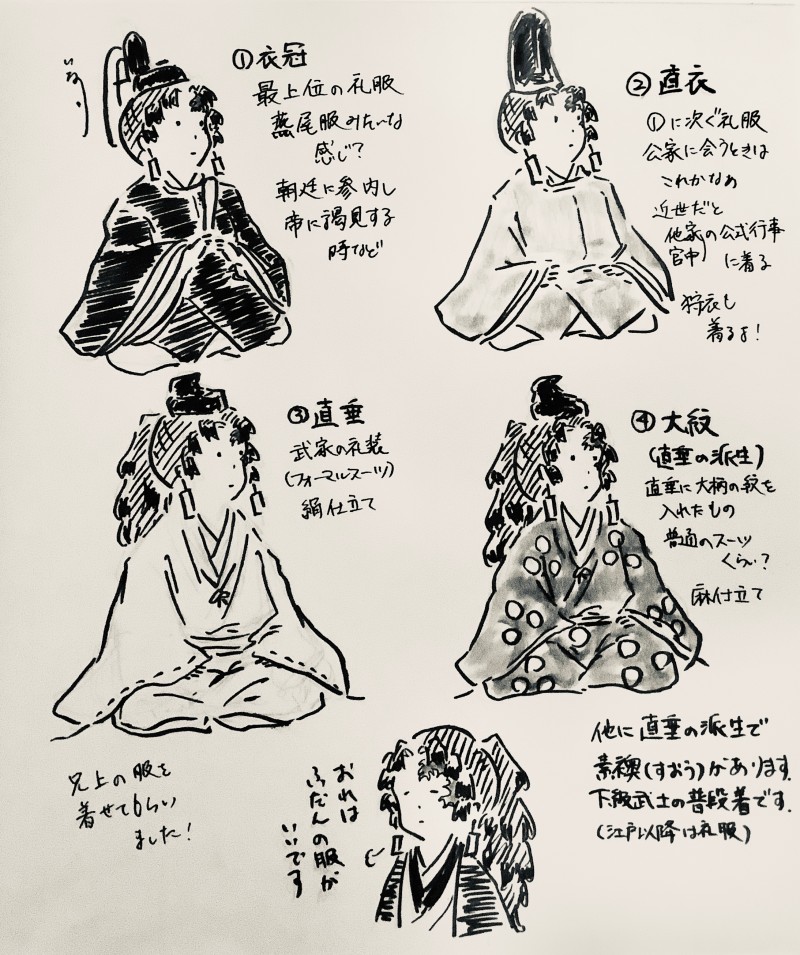 ①衣冠
最上位の礼服
燕尾服みたいな
感じ?
朝廷に参内し
帝に謁見する
時など
②直衣
①に次ぐ礼服
公家に会うときは
これかなぁ
近世だと
他家の公式行事
宮中
に着る
狩衣も
着るよ!
③直垂
武家の礼装
(フォーマルスーツ)
絹仕立て
④大紋
(直垂の派生)
直垂に大柄の紋を
入れたもの
普通のスーツ
くらい?
麻仕立て
兄上の服を
着せてもらい
ました!
おれは
ふだんの服が
いいです
他に直垂の派生で
素襖(すおう)があります。
下級武士の普段着です。
(江戸以降は礼服)